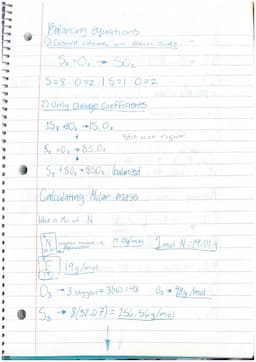 Balancing Equations
1) Count atoms on each side
S₈ + O₂ → SO₂
S=8 O=2 | S=1 O=2
2) Only Change Coefficients
still not right
S₈ + O₂ → 8SO₂
S₈ + 8O₂ → 8SO₂ balanced
Calculating Molar mass
What is M of N
N molar mass is 14.01g/mol 1mol N = 14.01g
F 19g/mol
O₃ → 3 oxygen = 3(16) = 48 O₃ → 48g/mol
S₈ → 8(32.07) = 256.56g/mol